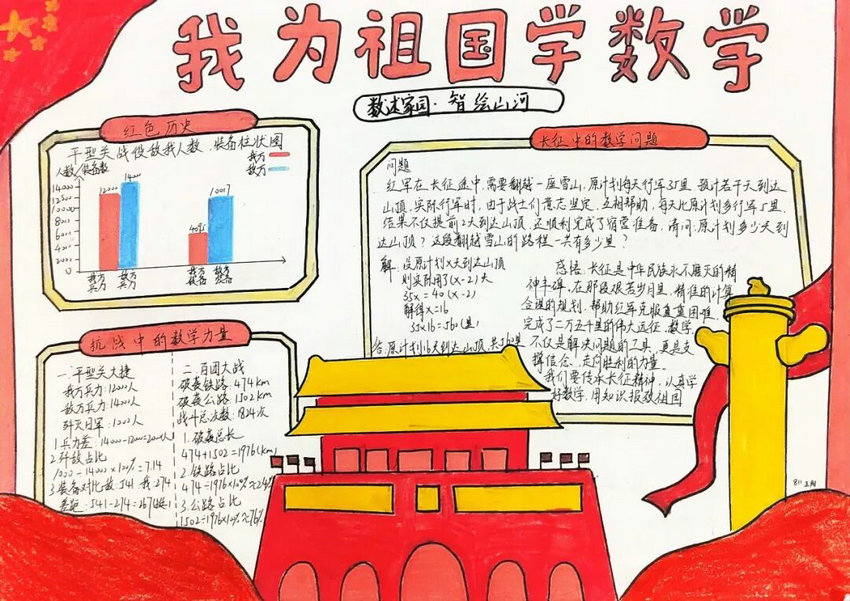 我为祖国学数学
数述家园·智绘山河
红色历史
平型关战役敌我人数、装备柱状图
人数/装备数
我方
敌方
14000
12000
10000
8000
6000
4000
2000
0
12000
14000
4095
10017
我方兵力
敌方兵力
我方装备
敌方装备
抗战中的数学力量
一.平型关大捷
我方兵力:12000人
敌方兵力:14000人
歼灭日军:1000人
1.兵力差 14000-12000=2000人
2.歼敌占比
1000÷14000×100%≈7.14
3.装备对比数:541 我:274
差距:541-274=267(挺)
二.百团大战
破袭铁路:474km
破袭公路:1502km
战斗总次数:1824次
1.破袭总长
474+1502=1976(km)
2.铁路占比
474÷1976×100%≈24%
3.公路占比
1502÷1976×100%≈76%
长征中的数学问题
问题
红军在长征途中,需要翻越一座雪山,原计划每天行军35里,预计若干天到达
山顶,实际行军时,由于战士们意志坚定,互相帮助,每天比原计划多行军5里,
结果不仅提前2天到达山顶,还顺利完成了宿营准备,请问:原计划多少天到
达山顶?这段翻越雪山的路程一共有多少里?
解:设原计划x天到达山顶
则实际用了(x-2)天
35x=40(x-2)
解得x=16
35×16=560(里)
答:原计划16天到达山顶,共560里
感悟:长征是中华民族永不磨灭的精
神丰碑,在那段艰苦岁月里,精准的计算
合理的规划,帮助红军克服重重困难
完成了二万五千里的伟大远征,数学
不仅是解决问题的工具,更是支
撑信念、走向胜利的力量。
我们要传承长征精神,认真学
好数学,用知识报效祖国